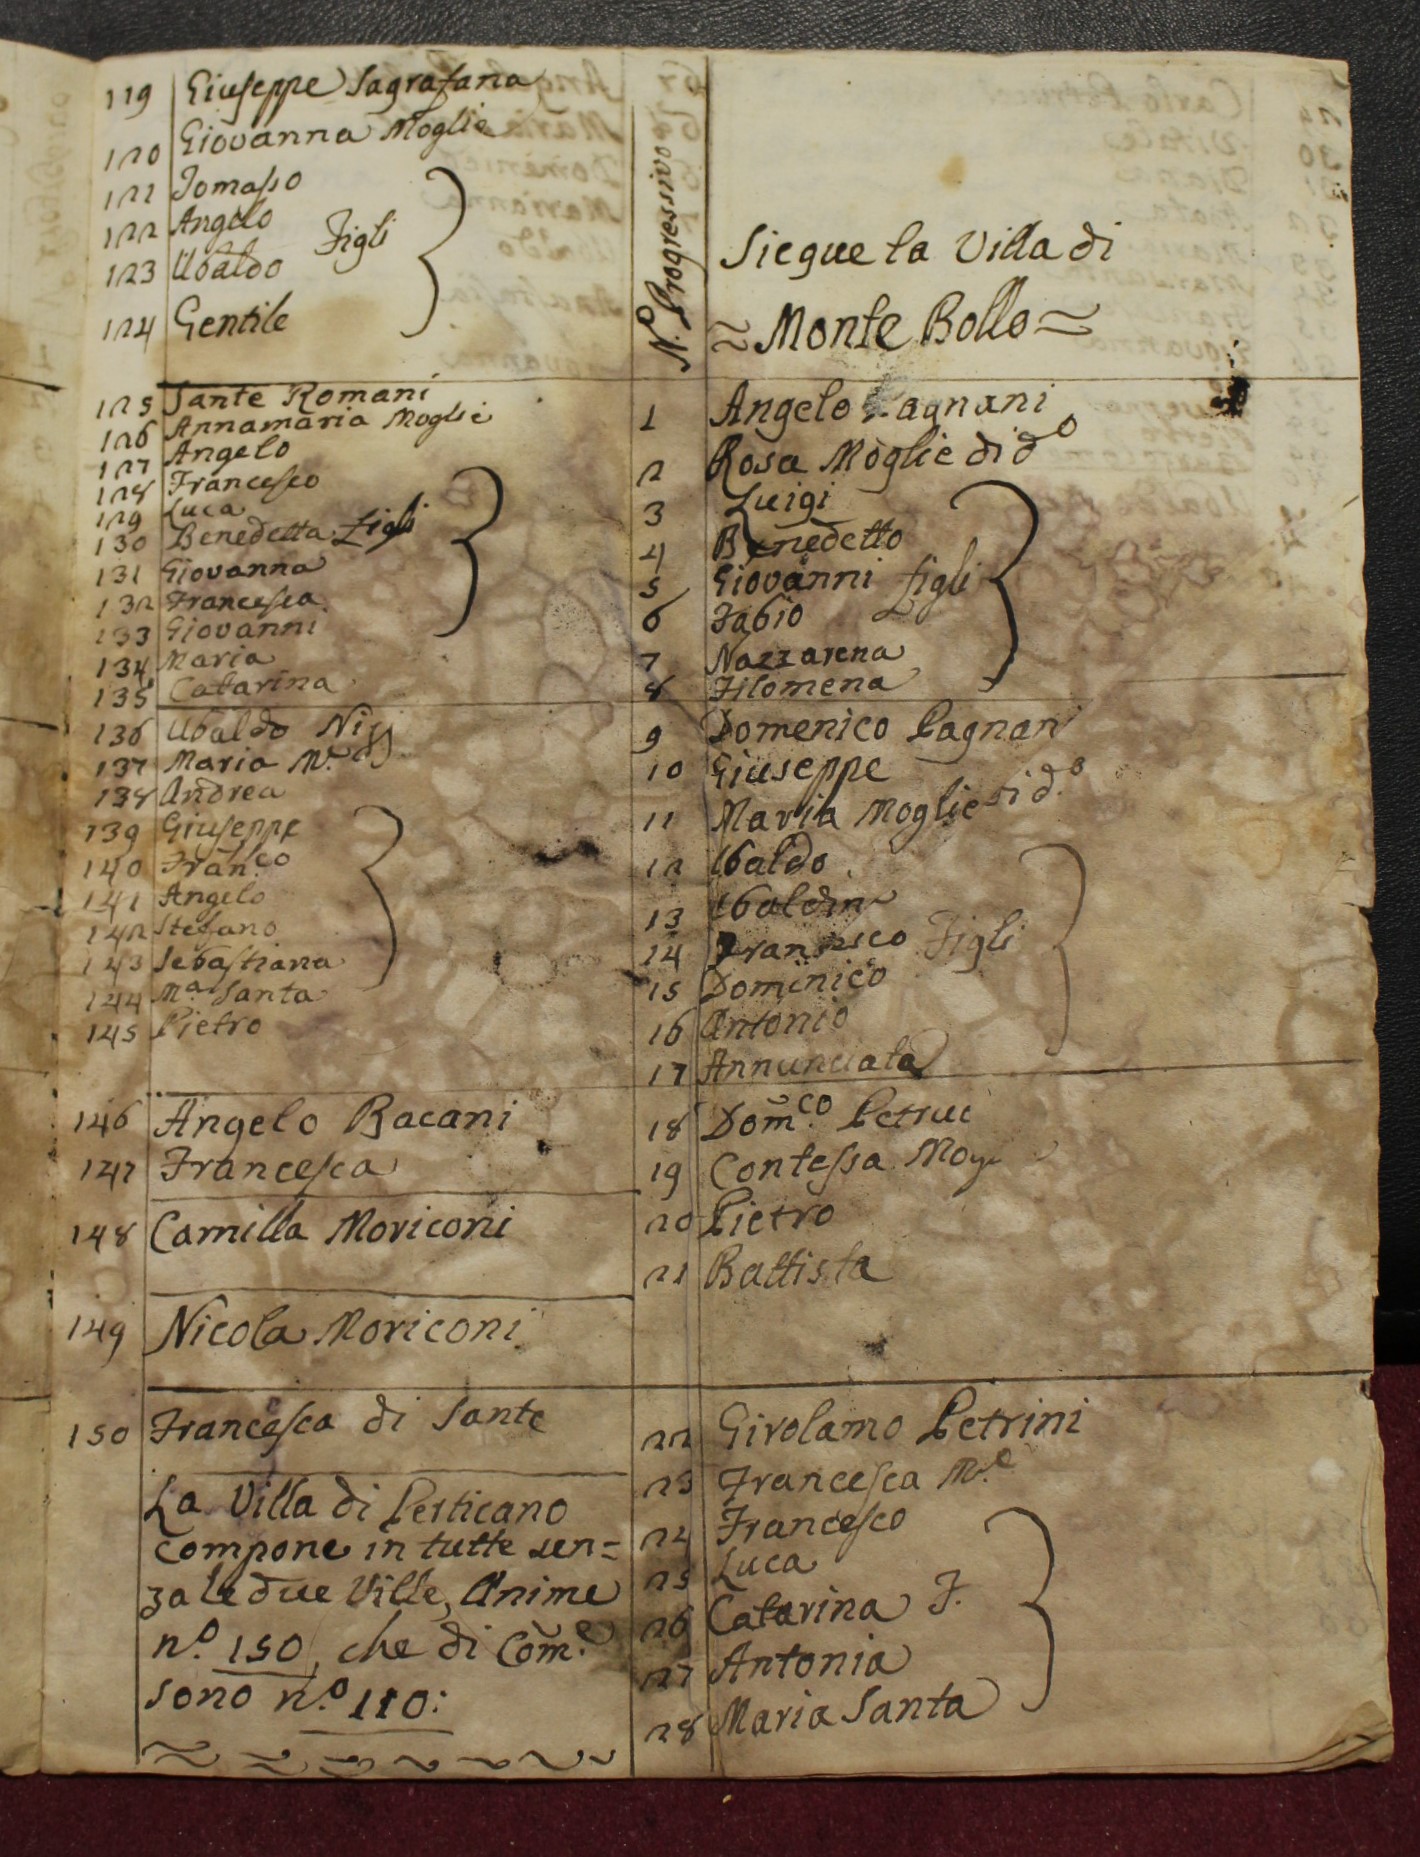 119 Giuseppe Sagrafana
120 Giovanna Moglie
121 Tomasso
122 Angelo Figli
123 Ubaldo
124 Gentile
125 Sante Romani
126 Annamaria Moglie
127 Angelo
128 Francesco
129 Luca
130 Benedetta figli
131 Giovanna
132 Francesca
133 Giovanni
134 Maria
135 Catarina
136 Ubaldo
137 Maria M.e
138 Andrea
139 Giuseppe
140 Fran.co
141 Angelo
142 Stefano
143 Sebastiana
144 M.a Santa
145 Pietro
146 Angelo Bacani
147 Francesca
148 Camilla Moriconi
149 Nicola Moriconi
150 Francesca di Sante
La Villa di Perticano
compone in tutte sen=
za le due Ville, Anime
n.o 150, che di Com.e
sono n.o 110:
N.o Progressivo
Siegue la Villa di
Monte Bollo
1 Angelo Pagnani
2 Rosa Moglie di d.o
3 Luigi
4 Benedetto
5 Giovanni figli
6 Fabio
7 Nazzarena
8 Filomena
9 Domenico Pagnani
10 Giuseppe
11 Maria Moglie di d.o
12 Ubaldo
13
14 Francesco Figli
15 Dominico
16 Antonio
17 Annunciata
18 Dom.co
19 Contessa
20 Pietro
21 Battista
22 Girolamo Petrini
23 Francesca M.e
24 Francesco
25 Luca
26 Catarina F.
27 Antonia
28 Maria Santa